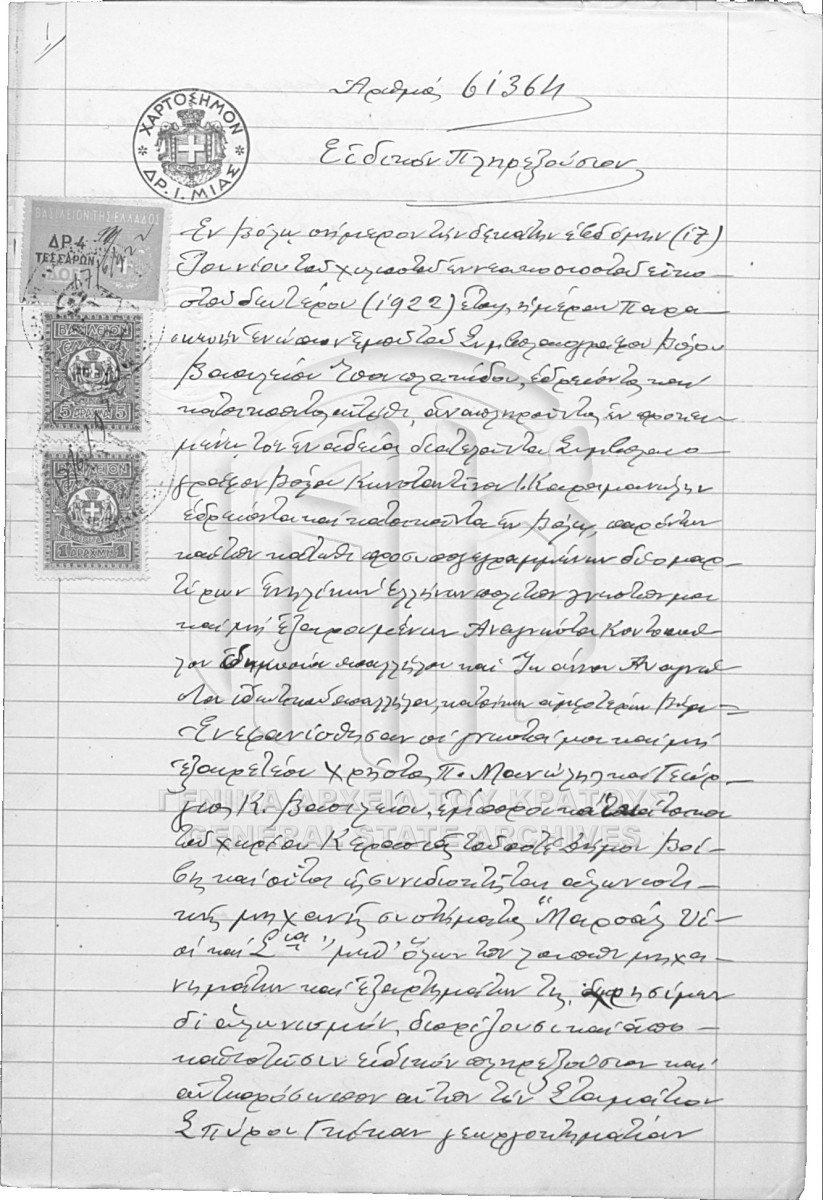 Αριθμός 61364
Ειδικόν Πληρεξούσιον
ΧΑΡΤΟΣΗΜΟΝ
ΔΡ. 1. ΜΙΑΣ
ΒΑΣΙΛΕΙΟΝ ΤΗΣ ΕΛΛΑΔΟΣ
ΔΡ. 4
ΤΕΣΣΑΡΩΝ
17/6/22
ΒΑΣΙΛΕΙΟΝ
5 ΔΡΑΧΜΑΙ 5
ΒΑΣΙΛΕΙΟΝ
1 ΔΡΑΧΜΗ 1
Εν Βόλω σήμερον την δεκάτην εβδόμην (17)
Ιουνίου του χιλιοστού εννεακοσιοστού εικο-
στού δευτέρου (1922) έτους ημέραν Παρα-
σκευήν ενώπιον εμού του Συμβολαιογράφου Βόλου
Βασιλείου Παπαδακίδου, εδρεύοντος και
κατοικούντος αυτόθι, αναπληρούντος εν προκει-
μένω τον εν αδεία διατελούντα Συμβολαιο-
γράφον Βόλου Κωνσταντίνον Ι. Καραμανώλην
εδρεύοντα και κατοικούντα εν Βόλω, παρόντων
και των κάτωθι προσυπογεγραμμένων δύο μαρ-
τύρων ενηλίκων Ελλήνων πολιτών γνωστών μοι
και μη εξαιρουμένων Αναγνώστου Κοντοπού-
λου δημοσίου υπαλλήλου και Ιωάννου Αναγνώ-
στου ιδιωτικού υπαλλήλου, κατοίκων αμφοτέρων Βόλου-
Ενεφανίσθησαν οι γνωστοί μοι και μη
εξαιρετέοι Χρήστος Π. Μανώλης και Γεώρ-
γιος Κ. Βασιλείου, έμποροι κάτοικοι
του χωρίου Κερασιάς του ποτέ Δήμου Βοί-
βης και ούτοι ως συνιδιοκτήται αλωνιστι-
κής μηχανής συστήματος "Μαρσάλ Υι-
οί και Σια" μεθ' όλων των λοιπών μηχα-
νημάτων και εξαρτημάτων της, χρησίμων
δι' αλωνισμόν, διορίζουσι και απο-
καθιστώσιν ειδικόν πληρεξούσιον και
αντιπρόσωπον αυτών τον Σταμάτιον
Σπύρου Γκέκαν γεωργοκτηματίαν
ΓΕΝΙΚΑ ΑΡΧΕΙΑ ΤΟΥ ΚΡΑΤΟΥΣ
GENERAL STATE ARCHIVES